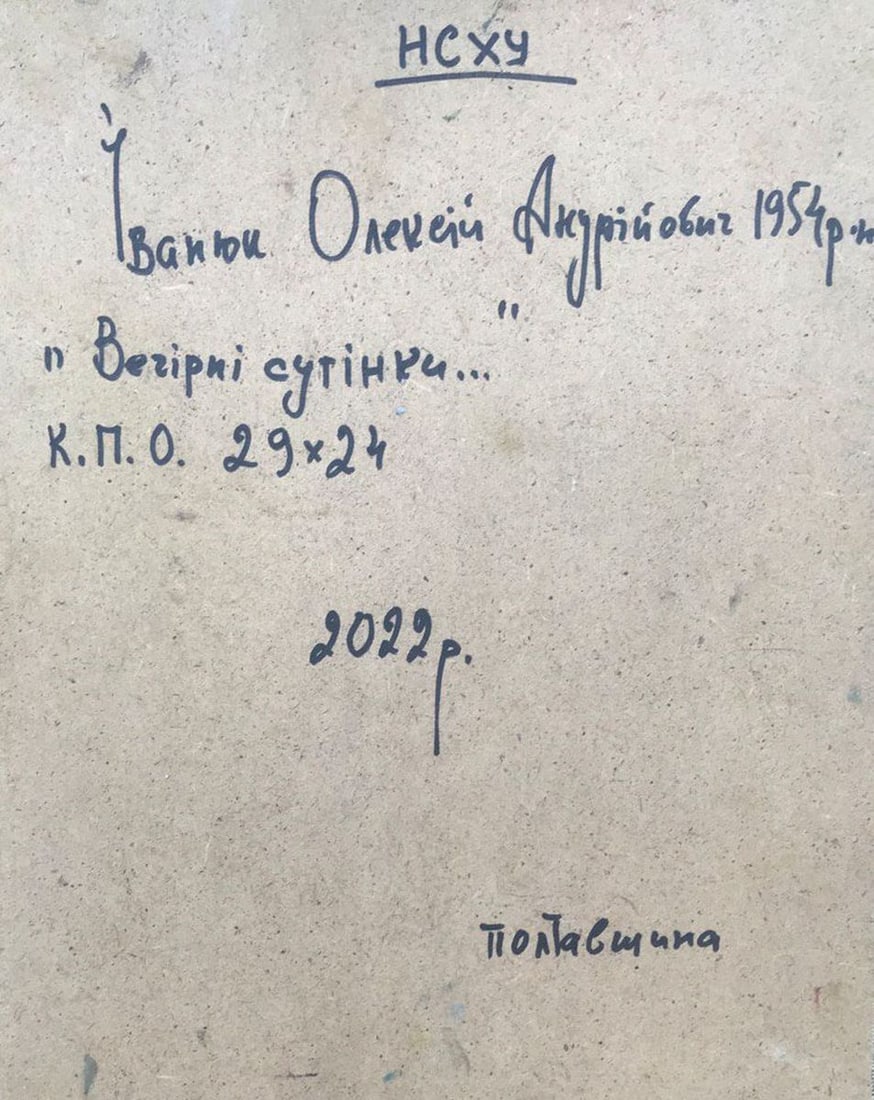 НСХУ
Іванюк Олексій Андрійович 1954р.н
" Вечірні сутінки... "
К.П.О. 29x24
2022р.
Полтавщина